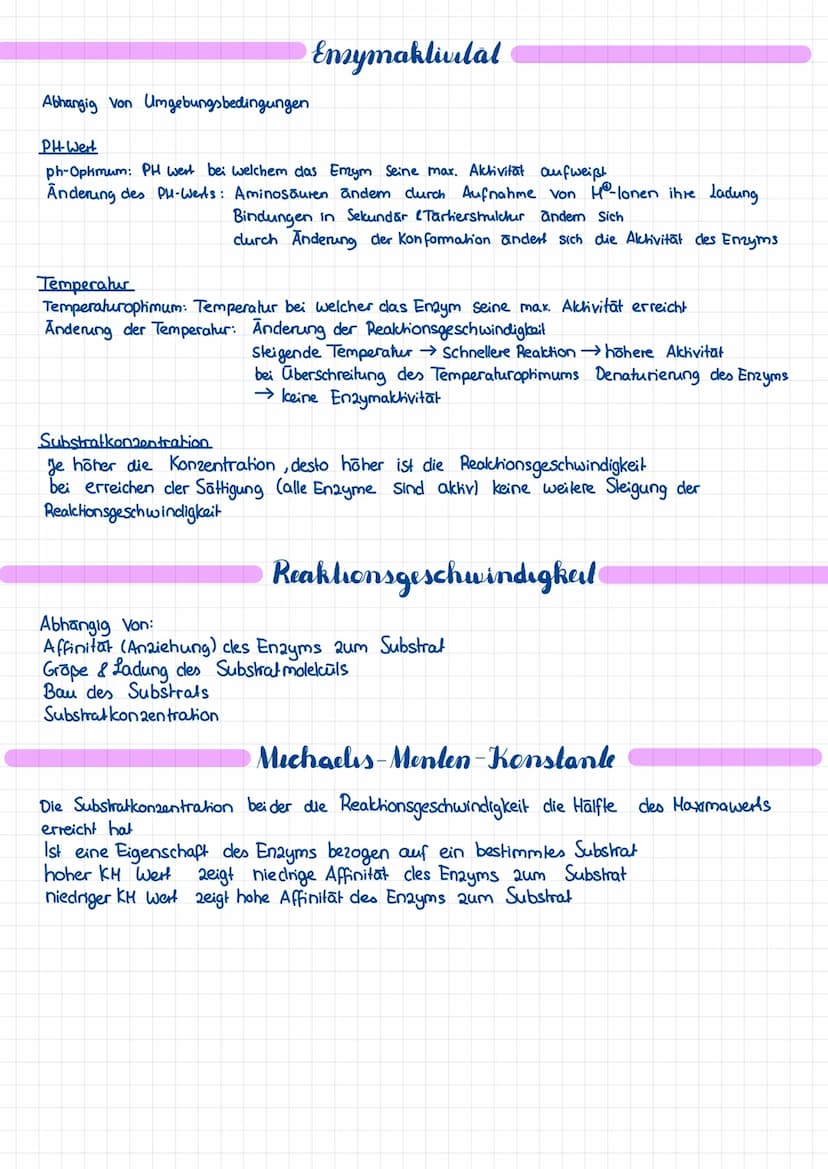 Enzymaktivität
Abhängig von Umgebungsbedingungen
PH-Wert
ph-Optimum: PH Wert bei welchem das Enzym seine max. Aktivität aufweißt
Änderung des PH-Werts: Aminosäuren ändern durch Aufnahme von H⊕-Ionen ihre Ladung
Bindungen in Sekundär & Tertierstruktur ändern sich
durch Änderung der Konformation ändert sich die Aktivität des Enzyms
Temperatur
Temperaturoptimum: Temperatur bei welcher das Enzym seine max. Aktivität erreicht
Änderung der Temperatur: Änderung der Reaktionsgeschwindigkeit
Steigende Temperatur → Schnellere Reaktion → höhere Aktivität
bei Überschreitung des Temperaturoptimums Denaturierung des Enzyms
→ keine Enzymaktivität
Substratkonzentration
Je höher die Konzentration, desto höher ist die Reaktionsgeschwindigkeit
bei erreichen der Sättigung (alle Enzyme sind aktiv) keine weitere Steigung der
Reaktionsgeschwindigkeit
Reaktionsgeschwindigkeit
Abhängig von:
Affinität (Anziehung) des Enzyms zum Substrat
Größe & Ladung des Substratmoleküls
Bau des Substrats
Substratkonzentration
Michaelis-Menten-Konstante
Die Substratkonzentration bei der die Reaktionsgeschwindigkeit die Hälfte des Maximawerts
erreicht hat
Ist eine Eigenschaft des Enzyms bezogen auf ein bestimmtes Substrat
hoher KM Wert zeigt niedrige Affinität des Enzyms zum Substrat
niedriger KM Wert zeigt hohe Affinität des Enzyms zum Substrat